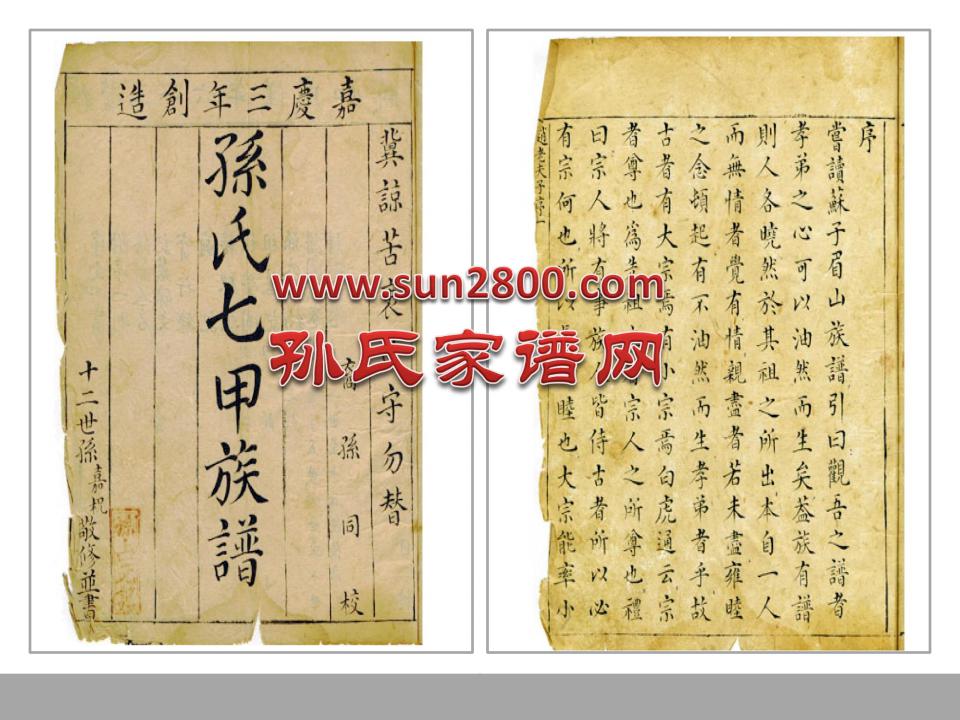 嘉慶三年創造
冀諒苦衷 守勿替
裔孫同校
孫氏七甲族譜
十二世孫嘉 敬修並書
www.sun2800.com
孙氏家谱网
序
嘗讀蘇子眉山族譜引曰觀吾之譜者
孝弟之心可以油然而生矣葢族有譜
則人各曉然於其祖之所出本自一人
而無情者覺有情親盡者若未盡雍睦
之念頓起有不油然而生孝弟者乎故
古者有大宗焉有小宗焉白虎通云宗
者尊也為先祖 宗人之所尊也禮
曰宗人將有事族人皆侍古者所以必
有宗何也所以 睦也大宗能率小
趙老夫子序一